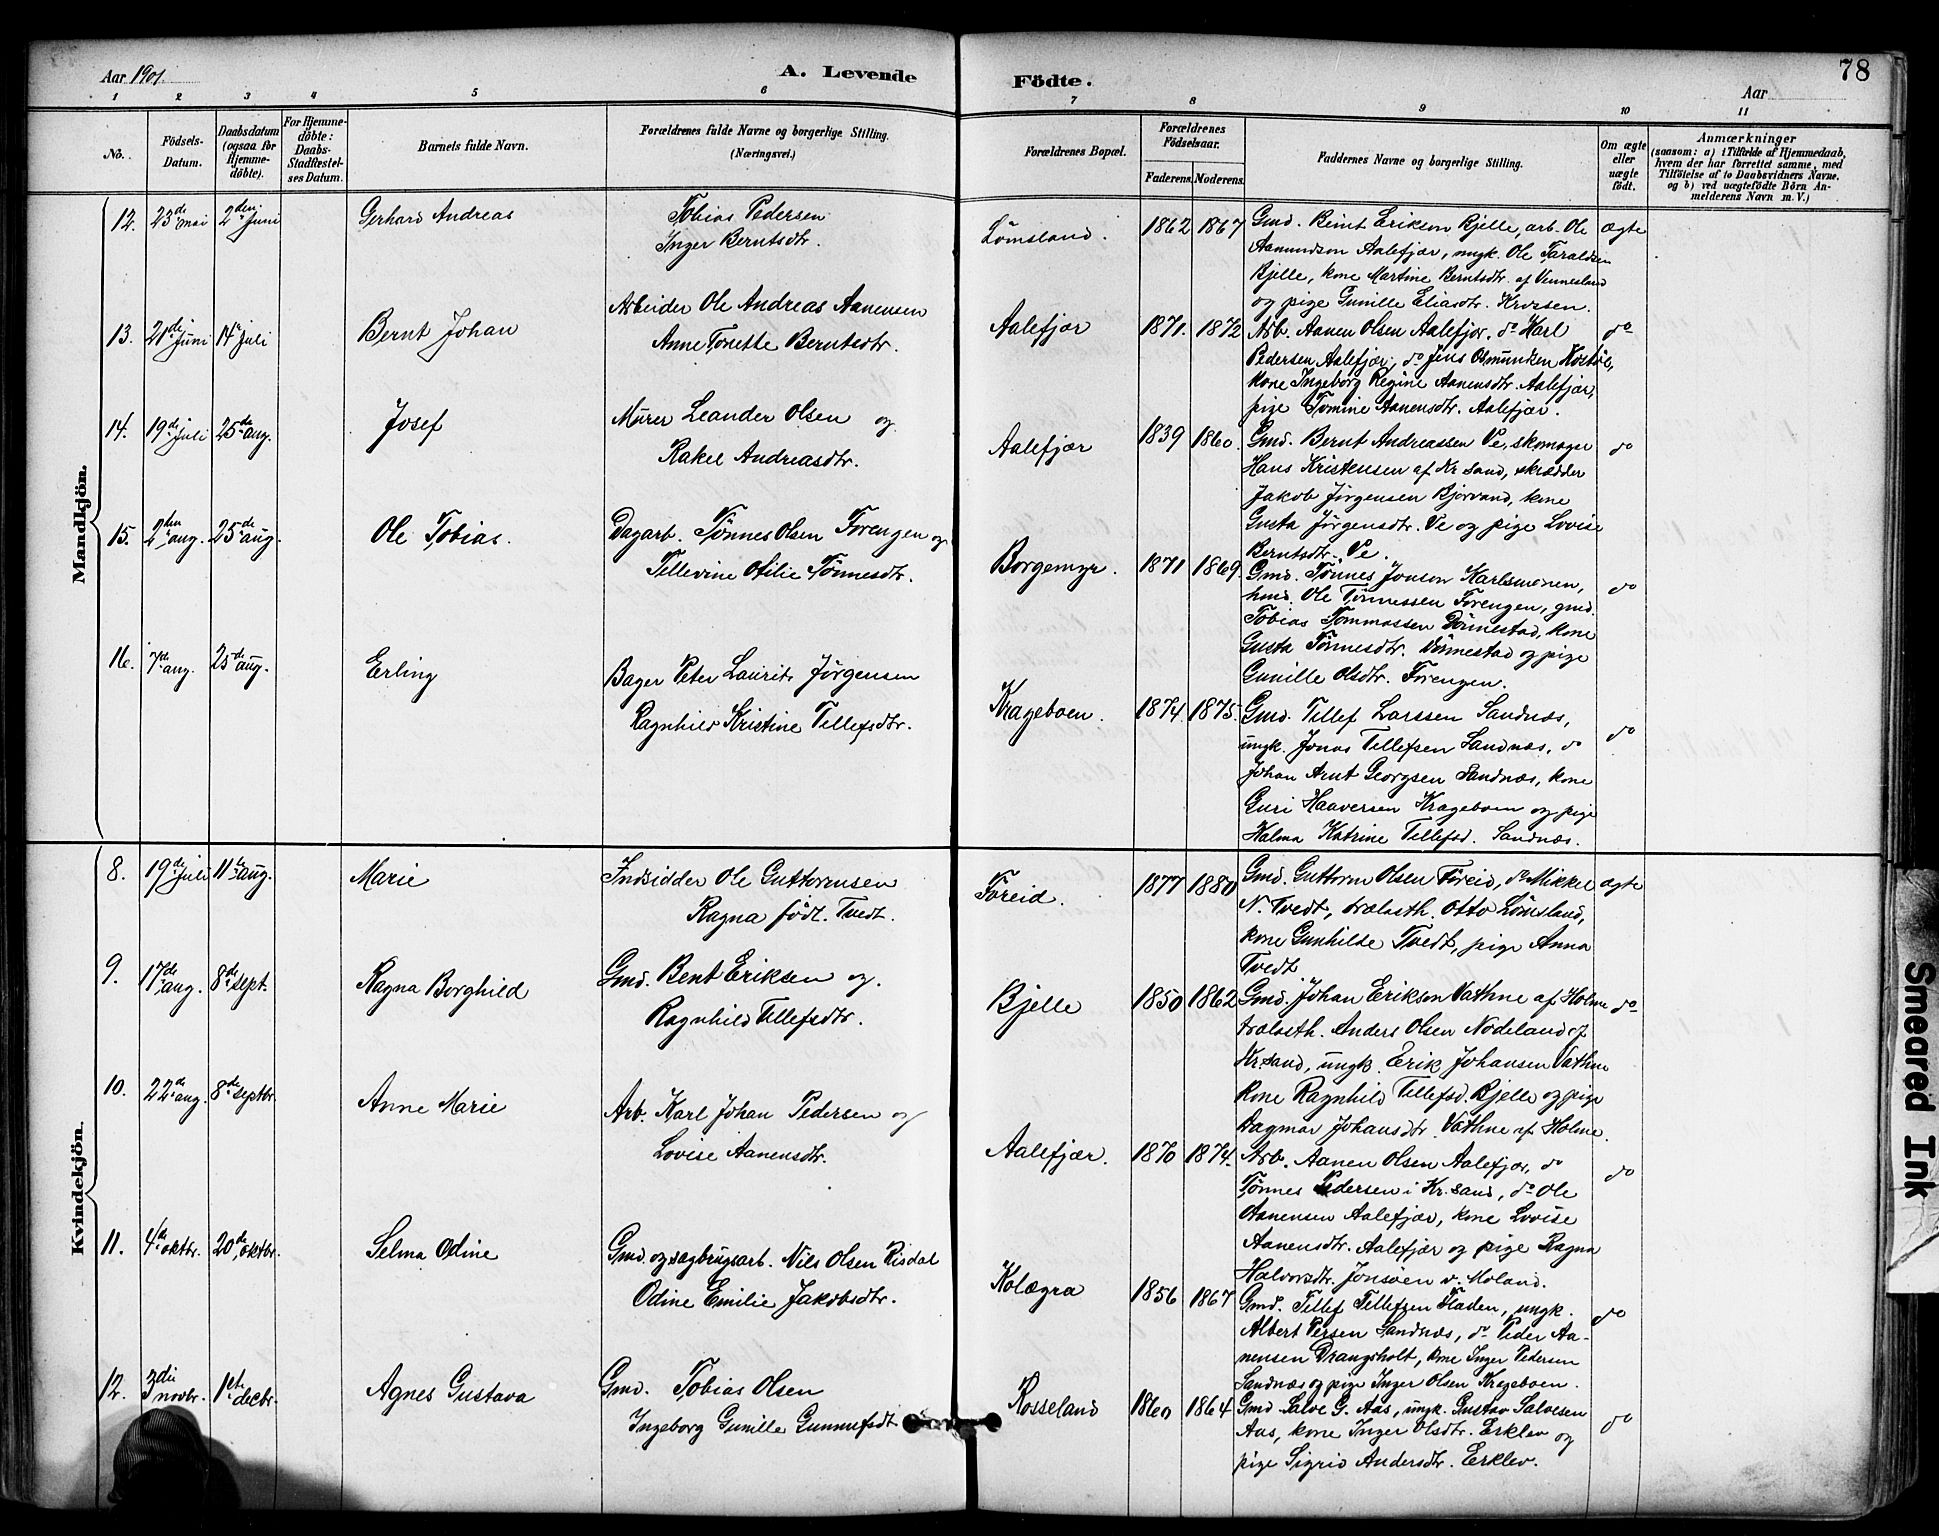 Aar 1901.
A. Levende Födte.
78
Aar
1 2 3 4 5 6 7 8 9 10 11
No. Födsels-Datum. Daabsdatum (ogsaa for Hjemmedöbte). For Hjemmedöbte: Daabs-Stadfestelses Datum. Barnets fulde Navn. Forældrenes fulde Navne og borgerlige Stilling. (Næringsvei.) Forældrenes Bopæl. Forældrenes Födselsaar. Faderens. Moderens. Faddernes Navne og borgerlige Stilling. Om ægte eller uægte födt. Anmærkninger (saasom: a) i Tilfælde af Hjemmedaab, hvem der har forrettet samme, med Tilföielse af to Daabsvidners Navne, og b) ved uægtefödte Börn Anmelderens Navn m. V.)
Mandkjön.
12. 23de mai 2den juni Gerhard Andreas
Tobias Pedersen
Inger Berntsdtr.
Lømsland. 1862 1867
Gmd. Beint Erikson Bjelle, arb. Ole
Aanundson Aalefjær, ungk. Ole Taraldsen
Bjelle, kone Martine Berntsdtr. af Vennesland
og pige Gunille Eliasdtr. Krossen.
ægte
13. 21de juni 14de juli Bernt Johan
Arbeider Ole Andreas Aanensen
Anne Tonette Berntsdtr.
Aalefjær 1871. 1872
Arb. Aanen Olsen Aalefjær. do Karl
Pedersen Aalefjær, do Jens Osmundsen
kone Ingeborg Regine Aanensdtr. Aalefjær,
pige Tomine Aanensdtr. Aalefjær.
do
14. 19de juli 25de aug. Josef
Murer Leander Olsen og
Rakel Andreasdtr.
Aalefjær 1839 1860.
Gmd. Bernt Andreassen Ve, skomager
Hans Kristensen af Kr sand, skrædder
Jakob Jørgensen Bjorvand, kone
Gusta Jørgensdtr. Ve og pige Lovise
Berntsdtr. Ve.
do
15. 2den aug. 25de aug. Ole Tobias.
Dagarb. Tønnes Olsen Forengen og
Tellevine Ofilie Tønnesdtr.
Borgemyr. 1871 1869
Gmd. Tønnes Jonson Karlsmonen,
hmd. Ole Tønnessen Forengen, gmd.
Tobias Tommassen Dønnestad, kone
Gusta Tønnesdtr. Dønnestad og pige
Gunille Olsdtr. Forengen.
do
16. 7de aug. 25de aug. Erling
Bager Peter Laurits Jørgensen
Ragnhild Kristine Tellefsdtr.
Krageboen. 1874 1875.
Gmd. Tellef Larssen Sandnæs,
ungk. Jonas Tellefsen Sandnæs, do
Johan Arnt Georgsen Sandnæs, kone
Guri Haaversen Krageboen og pige
Halma Katrine Tellefsd. Sandnæs.
do
Kvindekjön.
8. 19de juli 11te aug. Marie
Indsidder Ole Guttormsen
Ragna født. Tvedt.
Foreid. 1877 1880
Gmd. Guttorm Olsen Foreid, do Mikkel
N. Tvedt, trælasth. Otto Lømsland,
kone Gunhilde Tvedt, pige Anna
Tvedt
ægte
9. 17de aug. 8de sept. Ragna Borghild
Gmd. Bent Eriksen og
Ragnhild Tellefsdtr.
Bjelle 1850 1862
Gmd. Johan Erikson Vathne af Holme
trælasth. Anders Olsen Nodeland af
Kr.sand, ungk. Erik Johansen Vathne
kone Ragnhild Tellefsd. Bjelle og pige
Dagmar Johansdtr. Vathne af Holme.
do
10. 22de aug. 8de septbr. Anne Marie
Arb. Karl Johan Pedersen og
Lovise Aanensdtr.
Aalefjær. 1870 1874.
Arb. Aanen Olsen Aalefjær, do
Tønnes Pedersen i Kr.sand, do Ole
Aanensen Aalefjær, kone Lovise
Aanensdtr. Aalefjær og pige Ragna
Halvorsdtr. Jonsøen v. Moland.
do
11. 4de oktbr. 20de oktbr. Selma Odine
Gmd og sagbrugsarb. Nils Olsen Risdal
Odine Emilie Jakobsdtr.
Kolægra 1856 1867
Gmd. Tellef Tellefsen Fladen, ungk.
Albert Persen Sandnæs, do Peder Aa-
nensen Drangsholt, kone Inger Pedersen
Sandnæs og pige Inger Olsen Krageboen.
do
12. 3die novbr. 1ste decbr. Agnes Gustava
Gmd. Tobias Olsen
Ingeborg Gunille Gunnufsdt
Rosseland 1860 1864
Gmd Salve G. Aas, ungk. Gustav Salvesen
Aas, kone Inger Olsdtr. Erklev og
pige Sigrid Andersdtr. Erklev.
do
Smeared Ink